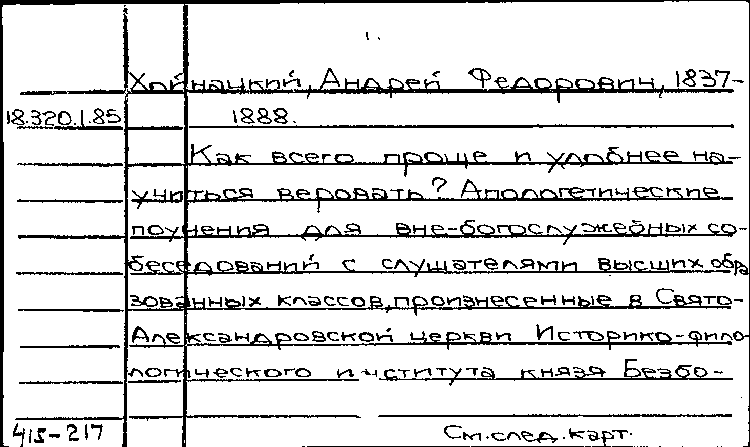 1.
Хойнацкий, Андрей Федорович, 1837-
18.320.1.85 1888.
Как всего проще и удобнее на-
учиться веровать? Апологетические
поучения для вне-богослужебных со-
беседований с слушателями высших обра
зованных классов, произнесенные в Свято-
Александровской церкви Историко-фило-
логического института князя Безбо-
415-217 См. след. карт.